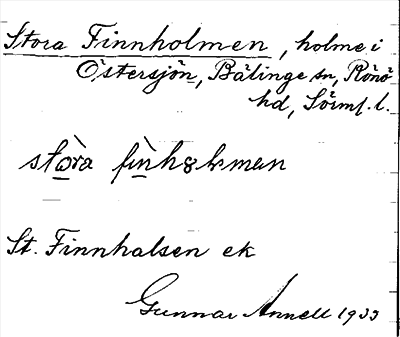 Stora Finnholmen, holme i
Östersjön, Bälinge sn, Rönö
hd, Sörml. l.
stòra fìnhɷlmen
St. Finnhalsen ek
Gunnar Annell 1933